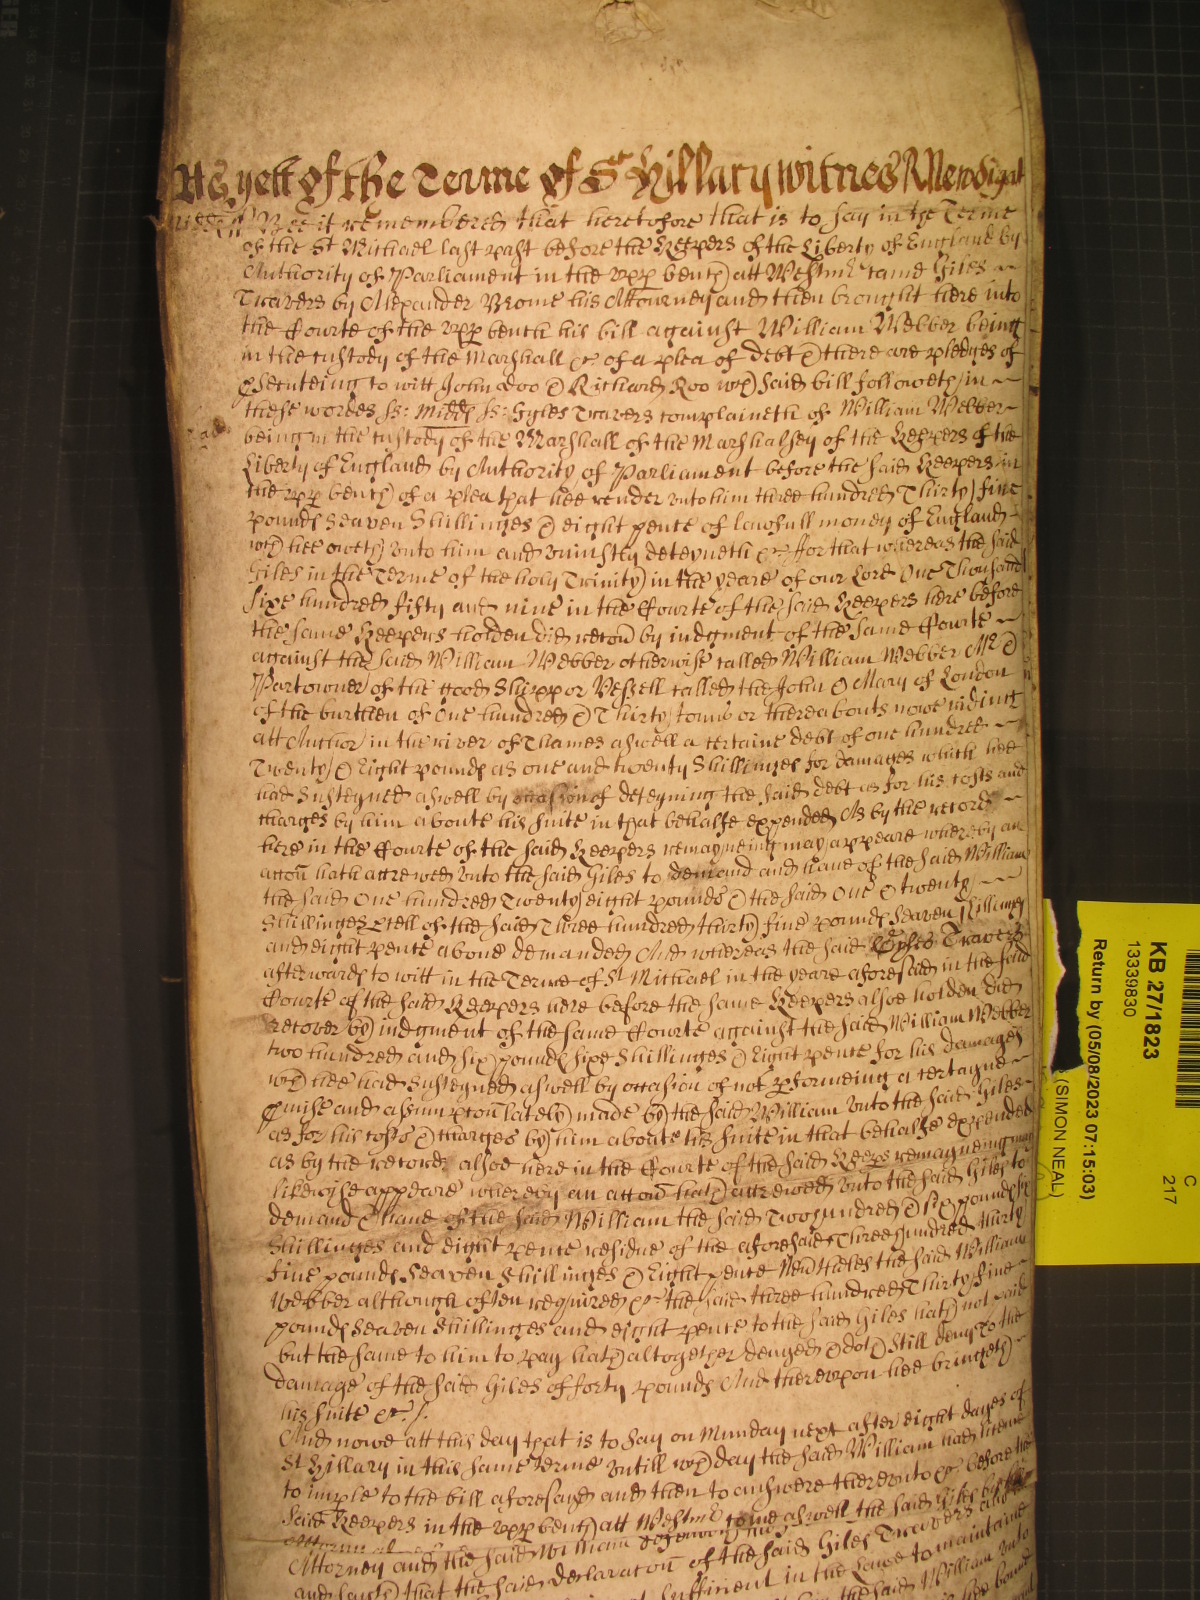 As yett of the Terme of St Hillary witnes R Newdigat
Middss Bee it remembered that heretofore that is to say in the Terme
of the St Michael last past before the Keepers of the Liberty of England by
Authority of Parliament in the upp bench att Westmr came Giles
Travers by Alexander Brome his Attourney and then brought here into
the Courte of the upp bench his bill against William Webber being
in the custody of the Marshall &c of a plea of debt & there are pledges of
psecuteing to witt John Doo & Richard Roo wch said bill followeth in
these wordes ss: Midds ss: Gyles Travers complaineth of William Webber
being in the custody of the Marshall of the Marshalsey of the Keepers of the
Liberty of England by Authority of Parliament before the said Keepers in
the upp bench of a plea that hee render unto him three hundred Thirty five
pounds seaven Shillinges & eight pence of lawfull money of England
wch hee oweth unto him and uniustly deteyneth &c for that whereas the said
Giles in the Terme of the holy Trinity in the yeare of our Lord One Thousand
sixe hundred fifty and nine in the Courte of the said Keepers here before
the same Keepers holden did recou by iudgment of the same Courte
against the said William Webber otherwise called William Webber Mr &
Partowner of the good Shipp or Vessell called the John & Mary of London
of the burthen of One hundred & Thirty tonns or thereabouts nowe rideing
att Anchor in the river of Thames aswell a certaine debt of one hundred
Twenty & Eight pounds as one and twenty Shillinges for damages which hee
had susteyned aswell by occasion of deteyning the said debt as for his costs and
charges by him aboute his suite in that behalfe expended As by the record
here in the Courte of the said Keepers remayneing may appeare whereby an
accou hath accrewed unto the said Giles to demand and haue of the said William
the said One hundred Twenty eight pounds & the said One & twenty
Shillinges pcell of the said Three hundred thirty fiue pounds seaven Shillinges
and eight pence aboue demanded And whereas the said Gyles Travers
afterwards to witt in the Terme of St Michael in the yeare aforesaid in the said
Courte of the said Keepers here before the same Keepers alsoe holden did
recover by iudgment of the same Courte against the said William Webber
two hundred and six pounds sixe Shillinges & Eight pence for his damages
wch hee had susteyned aswell by occasion of not pformeing a certayne
pmise and assumpcon lately made by the said William unto the said Giles
as for his costs & charges by him aboute his suite in that behalfe expended
as by the record alsoe here in the Courte of the said Keeps remayneing may
likewyse appeare whereby an accon hath accrewed unto the said Giles to
demand & haue of the said William the said Two hundred & six pounds six
Shillinges and eight pence residue of the aforesaid Three hundred thirty
fiue pounds Seaven Shillinges & Eight pence Neutheles the said William
Webber although often required &c the said three hundred Thirty fiue
pounds seaven Shillinges and eight pence to the said Giles hath not paid
but the same to him to pay hath altogether denyed & doth still deny to the
damage of the said Giles of forty pounds And thereupon hee bringeth
his suite &c.
And nowe att this day that is to say on Munday next after eight dayes of
St Hillary in this same Terme untill wch day the said William had licence
to imple to the bill aforesayd and then to answere thereunto &c before the
said Keepers in the upp bench att Westmr come aswell the said Giles by his
Attorney and the said William
and sayth that the said declaracon of the said Giles Travers
sufficient in the Lawe to maintaine
the said William unto
KB 27/1823
13339830
Return by (05/08/2023 07:15:03)
(SIMON NEAL)
C
217